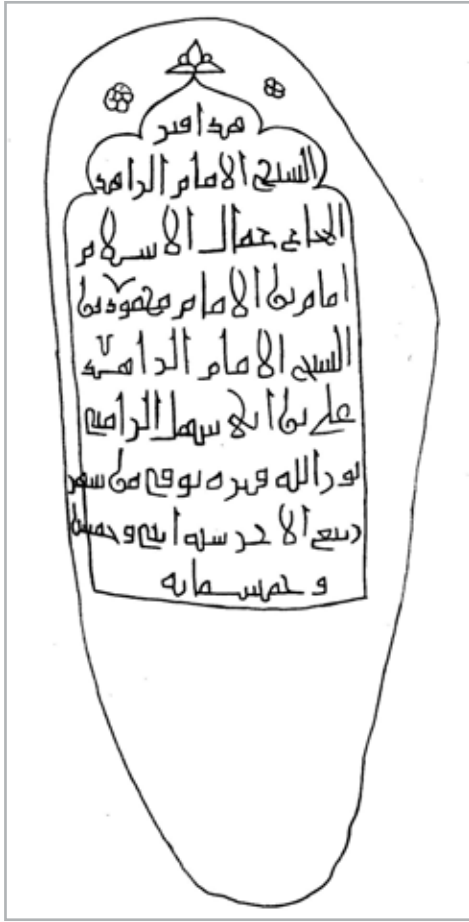 هذا قبر
الشيخ الامام الزاهد
الحاجي جمال الاسلام
امام بن الامام محمود بن
الشيخ الامام الزاهد
علي بن ابي سهل
نور الله قبره توفي من شهر
ربيع الاخر سنه اثني وخمسين
وخمسمايه